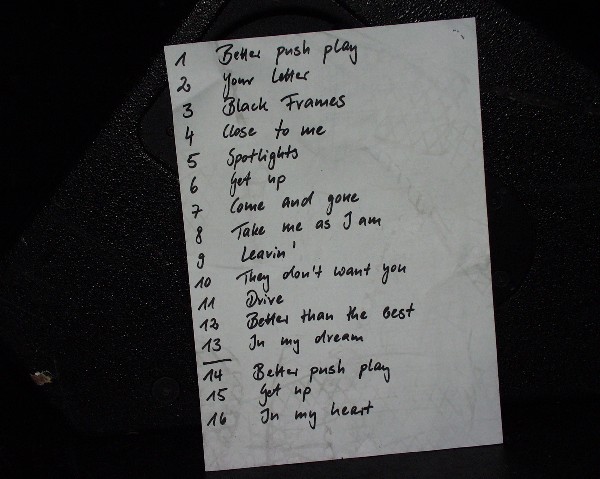 1 Better push play
2 Your letter
3 Black Frames
4 Close to me
5 Spotlights
6 Get up
7 Come and gone
8 Take me as I am
9 Leavin'
10 They don't want you
11 Drive
12 Better than the best
13 In my dream
14 Better push play
15 Get up
16 In my heart